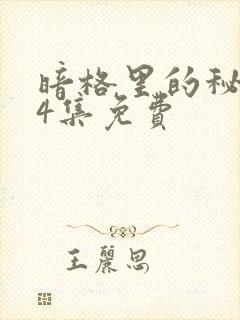 暗格里的秘
4集免费
王丽思